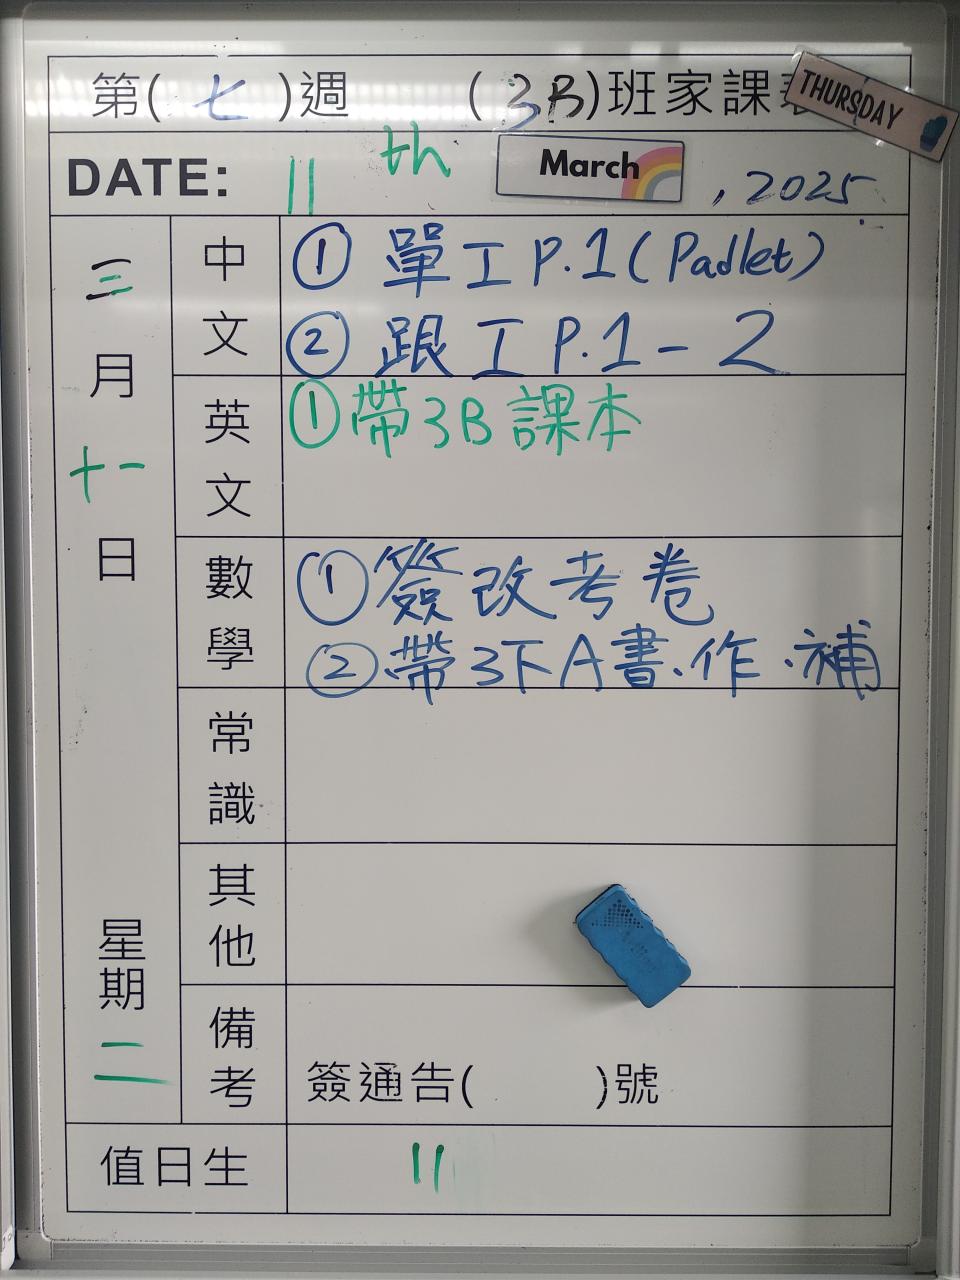 第( 七 )週 (3B)班家課
THURSDAY
DATE: 11th March , 2025
三月十一日 星期二
中文
① 單工 P.1 (Padlet)
② 跟工 P.1-2
英文
① 帶3B課本
數學
① 簽改考卷
② 帶3下A書、作、補
常識
其他
備考
簽通告( )號
值日生
11